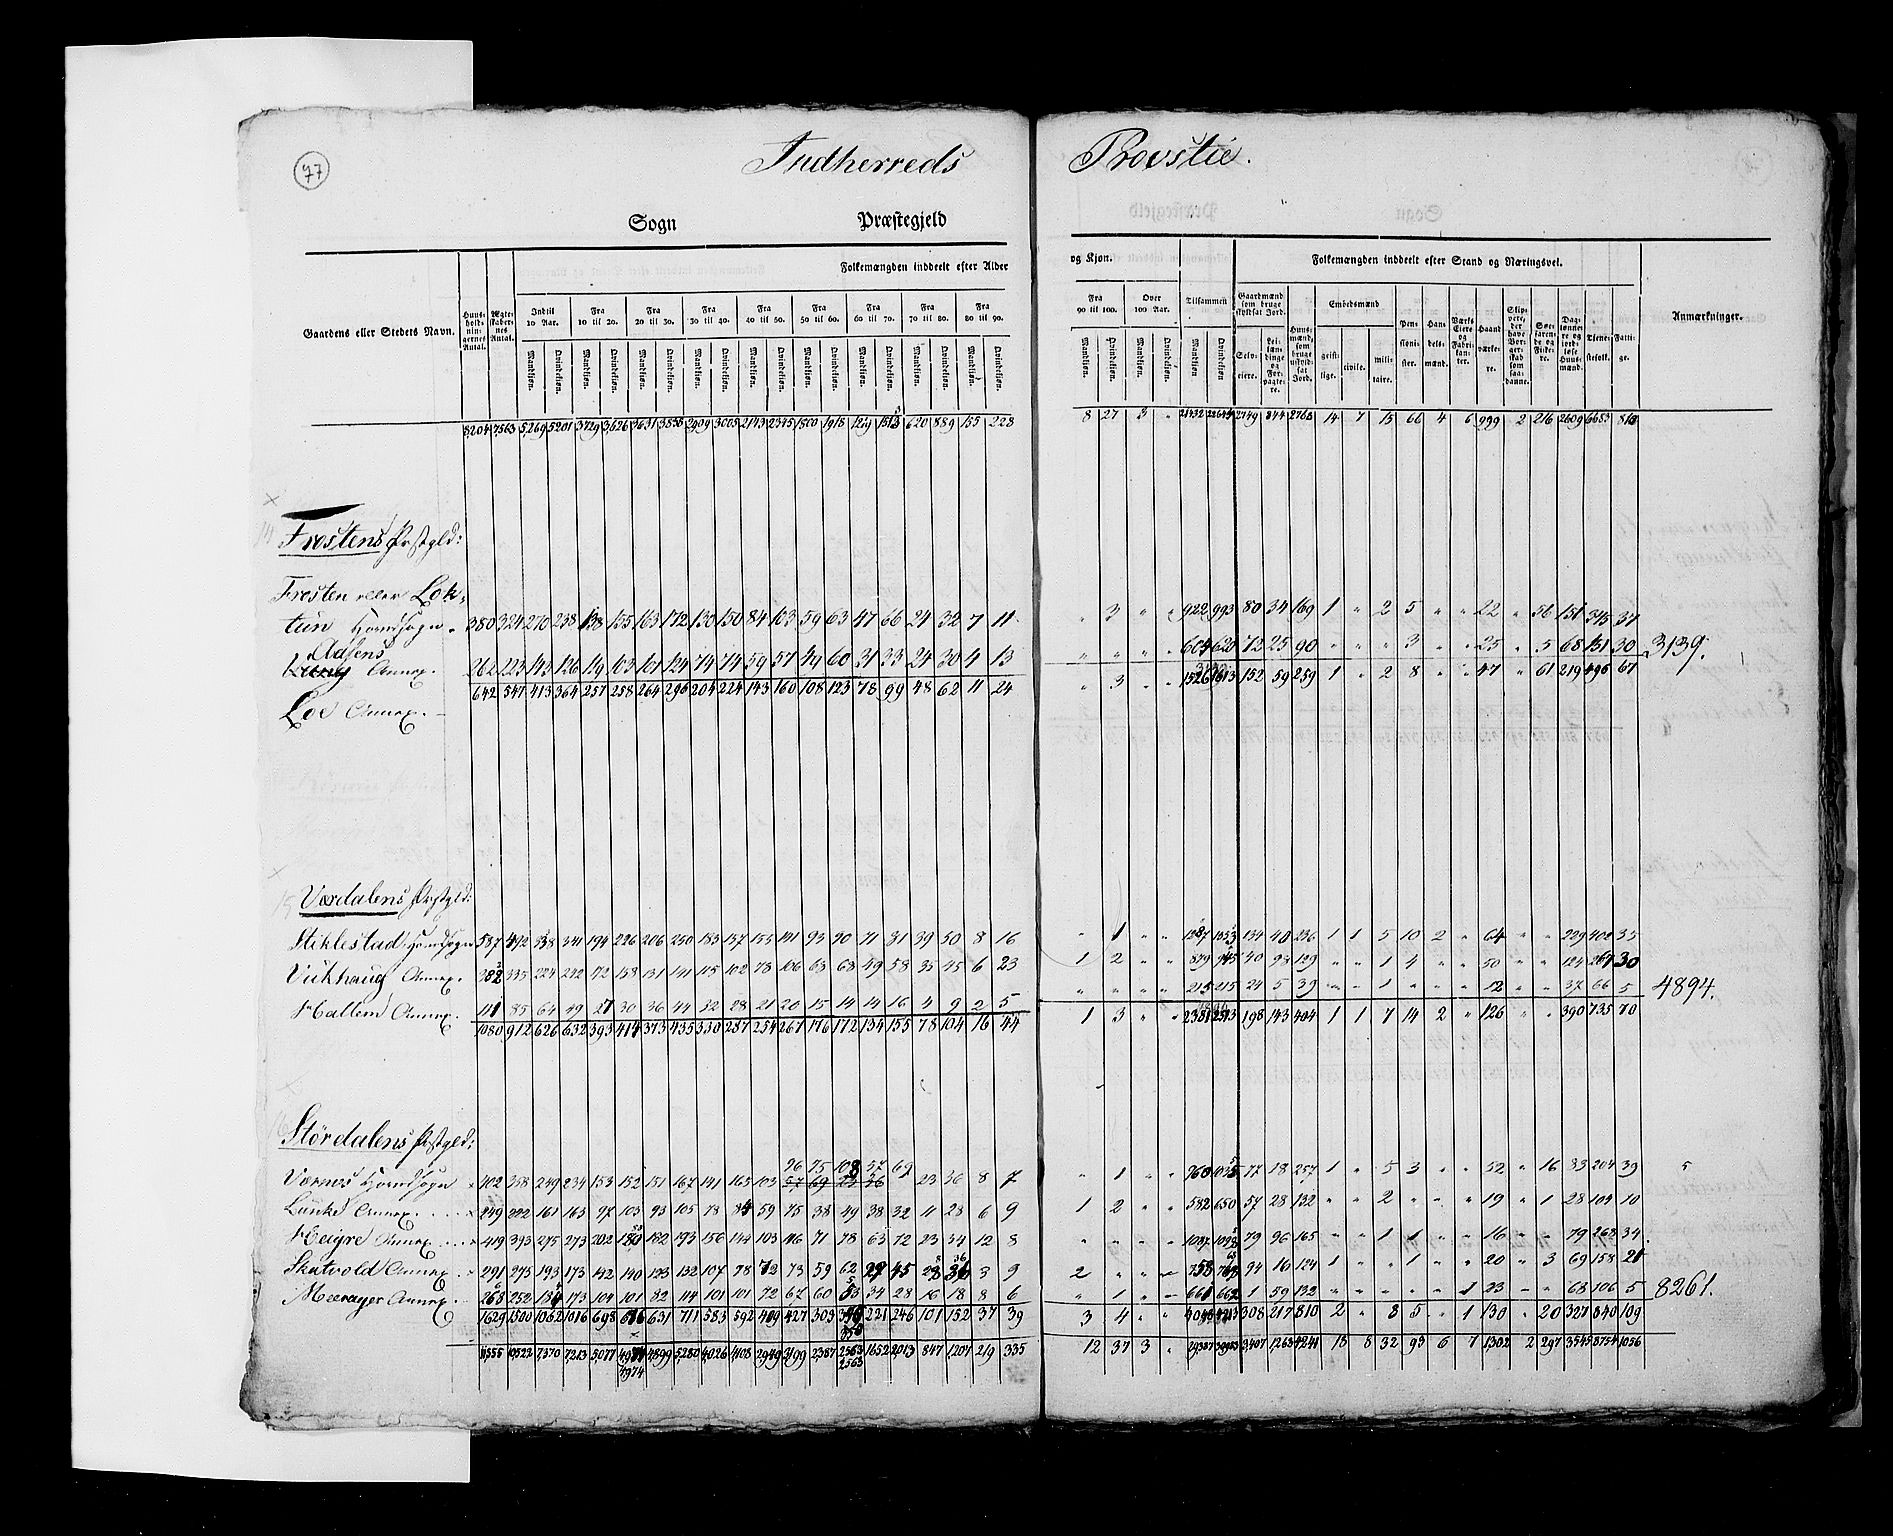 77
Indherreds Provstie.
Sogn Præstegjeld
Gaardens eller Stedets Navn. Folkemængden inddeelt efter Alder og Kjøn. Tilsammen Folkemængden inddeelt efter Stand og Næringsvei. Anmærkninger.
Huusholdningernes Antal. Ægteskabernes Antal. Indtil 10 Aar. Fra 10 til 20. Fra 20 til 30. Fra 30 til 40. Fra 40 til 50. Fra 50 til 60. Fra 60 til 70. Fra 70 til 80. Fra 80 til 90. Fra 90 til 100. Over 100 Aar.
Mandkiøn. Qvindekiøn. Mandkiøn. Qvindekiøn. Mandkiøn. Qvindekiøn. Mandkiøn. Qvindekiøn. Mandkiøn. Qvindekiøn. Mandkiøn. Qvindekiøn. Mandkiøn. Qvindekiøn. Mandkiøn. Qvindekiøn. Mandkiøn. Qvindekiøn. Mandkiøn. Qvindekiøn. Mandkiøn. Qvindekiøn. Mandkiøn Qvindekiøn.
Gaardmænd som bruge skyldsat Jord. Selveiere. Leilændinge og Forpagtere. Huusmænd, som bruge uskyldsat Jord. Embedsmænd geistlige. civile. militaire. Pensionister. Handelsmænd. Værks Eiere og Fabrikanter. Haandværkere. Søefarende og Fiskere. Tjenestefolk. Fattige.
8204 7563 5269 5201 3729 3626 3631 3838 2909 3005 2143 2345 1800 1918 620 889 155 228 8 27 3 " 21432 2749 844 2768 14 7 15 66 4 6 999 2 216 2609 6683
14 Frostens Prstgld:
Frosten eller Lok-
tun Hovedsogn. 380 324 270 238 138 155 163 172 130 150 84 103 59 63 47 66 24 32 7 11 " 3 " " 922 993 80 34 169 1 " 2 5 " " 22 " 56 151 345 37
Aasens Annex. 262 223 143 126 119 103 101 124 74 74 59 57 49 60 31 33 24 30 4 13 " " " " 604 620 72 25 90 " " " 3 " " 25 " 5 68 151 30 3139.
642 547 413 364 257 258 264 296 204 224 143 160 108 123 78 99 48 62 11 24 " 3 " " 1526 1613 152 59 259 1 " 2 8 " " 47 " 61 219 496 67
Loe Annex.
15 Værdalens Prstgld:
Stiklestad Hovedsogn 587 492 338 341 194 226 206 250 183 157 155 141 93 90 71 81 39 50 8 16 " 1 " " 1287 1353 134 40 236 1 1 5 10 2 " 64 " " 229 402 35
Vukhaug Annex. 382 335 224 242 172 158 131 141 115 102 78 106 68 68 49 58 35 45 6 23 1 2 " " 879 945 40 98 129 " " 1 4 " " 50 " " 124 267 30
Hallem Annex. 111 85 64 49 27 30 36 44 32 28 21 20 15 14 14 16 4 9 2 5 " " " " 215 215 24 5 39 " " 1 " " " 12 " " 37 66 5 4894.
1080 912 626 632 393 414 373 435 330 287 254 267 176 172 134 155 78 104 16 44 1 3 " " 2381 2513 198 143 404 1 1 7 14 2 " 126 " " 390 735 70
Størdalens Prstgld:
96 75 108 57 69
Værnes Hovedsogn 402 358 249 234 153 152 151 167 141 165 103 57 69 23 36 8 7 " 1 " " 960 77 18 257 1 " 5 3 " " 52 " 16 33 204 39
Lånke Annex. 249 222 161 163 97 103 93 105 78 84 59 75 38 49 38 32 11 28 6 9 1 2 " " 582 650 57 28 132 " " 2 " " " 19 " 1 28 104 10
Heigre Annex. 419 393 275 273 202 180 182 193 156 144 103 116 71 78 63 72 23 34 12 8 " " " " 1087 79 96 165 " " 1 1 " " 16 " " 79 268 34
Skatvold Annex. 291 275 193 173 142 140 123 132 107 78 72 73 59 62 29 45 3 9 2 " " " 758 768 94 16 124 1 " " 1 " " 20 " 3 69 158 21
Meerager Annex. 268 252 173 104 101 82 114 101 101 72 67 60 53 34 28 16 18 8 6 " 1 " " 661 662 1 59 132 " " " " " 1 23 " " 68 106 5 8261.
1629 1500 1062 1016 698 676 631 711 583 592 409 427 303 221 246 101 152 37 39 3 4 " " 308 217 810 2 " 8 5 " 1 130 " 20 327 840 109
11555 10522 7370 7213 5077 4899 5280 4026 4108 2949 2387 2563 1652 2013 847 1207 219 335 12 37 3 " 3407 1263 4241 18 8 32 93 6 7 1302 2 297 3545 8754 1056
4974 2563